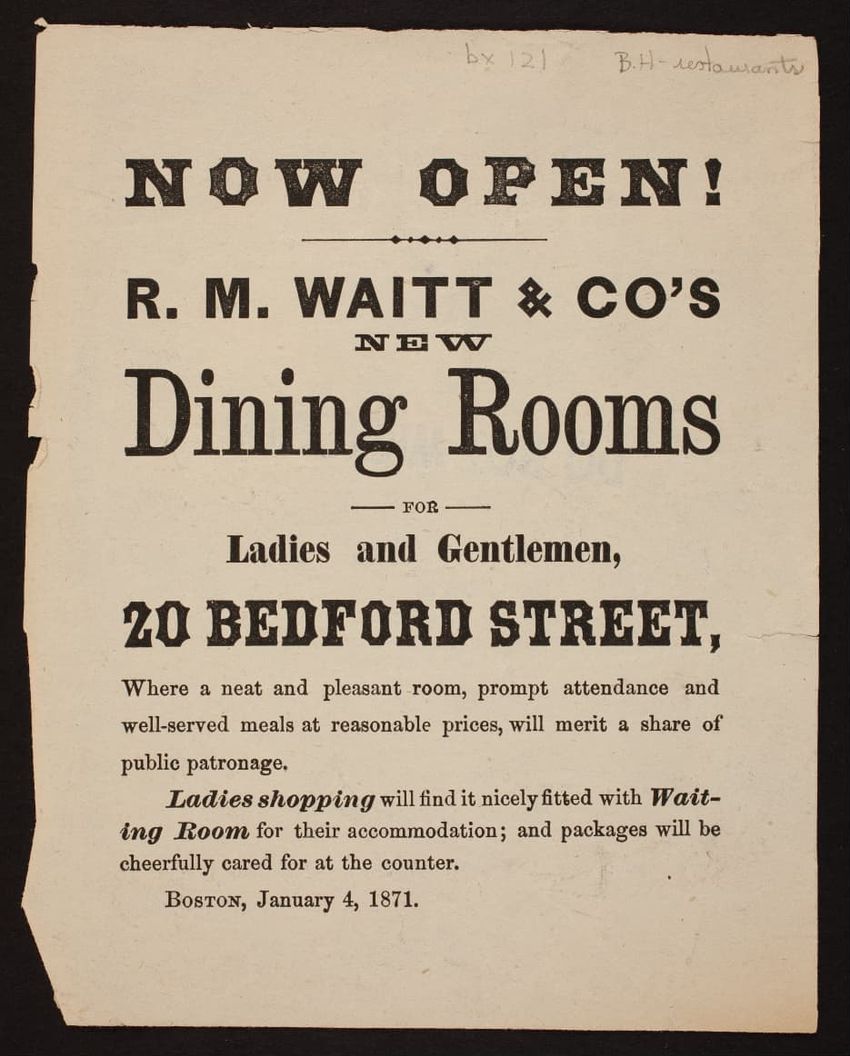 bx 121 B.H-restaurants
NOW OPEN!
R. M. WAITT & CO'S
NEW
Dining Rooms
FOR
Ladies and Gentlemen,
20 BEDFORD STREET,
Where a neat and pleasant room, prompt attendance and
well-served meals at reasonable prices, will merit a share of
public patronage.
Ladies shopping will find it nicely fitted with Wait-
ing Room for their accommodation; and packages will be
cheerfully cared for at the counter.
BOSTON, January 4, 1871.